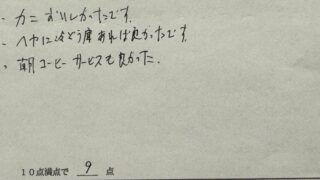 ・カニ おいしかったです.
・ヘヤに冷ぞう庫あれば良かったです.
・朝コーヒーサービスも良かった.
10点満点で 9 点